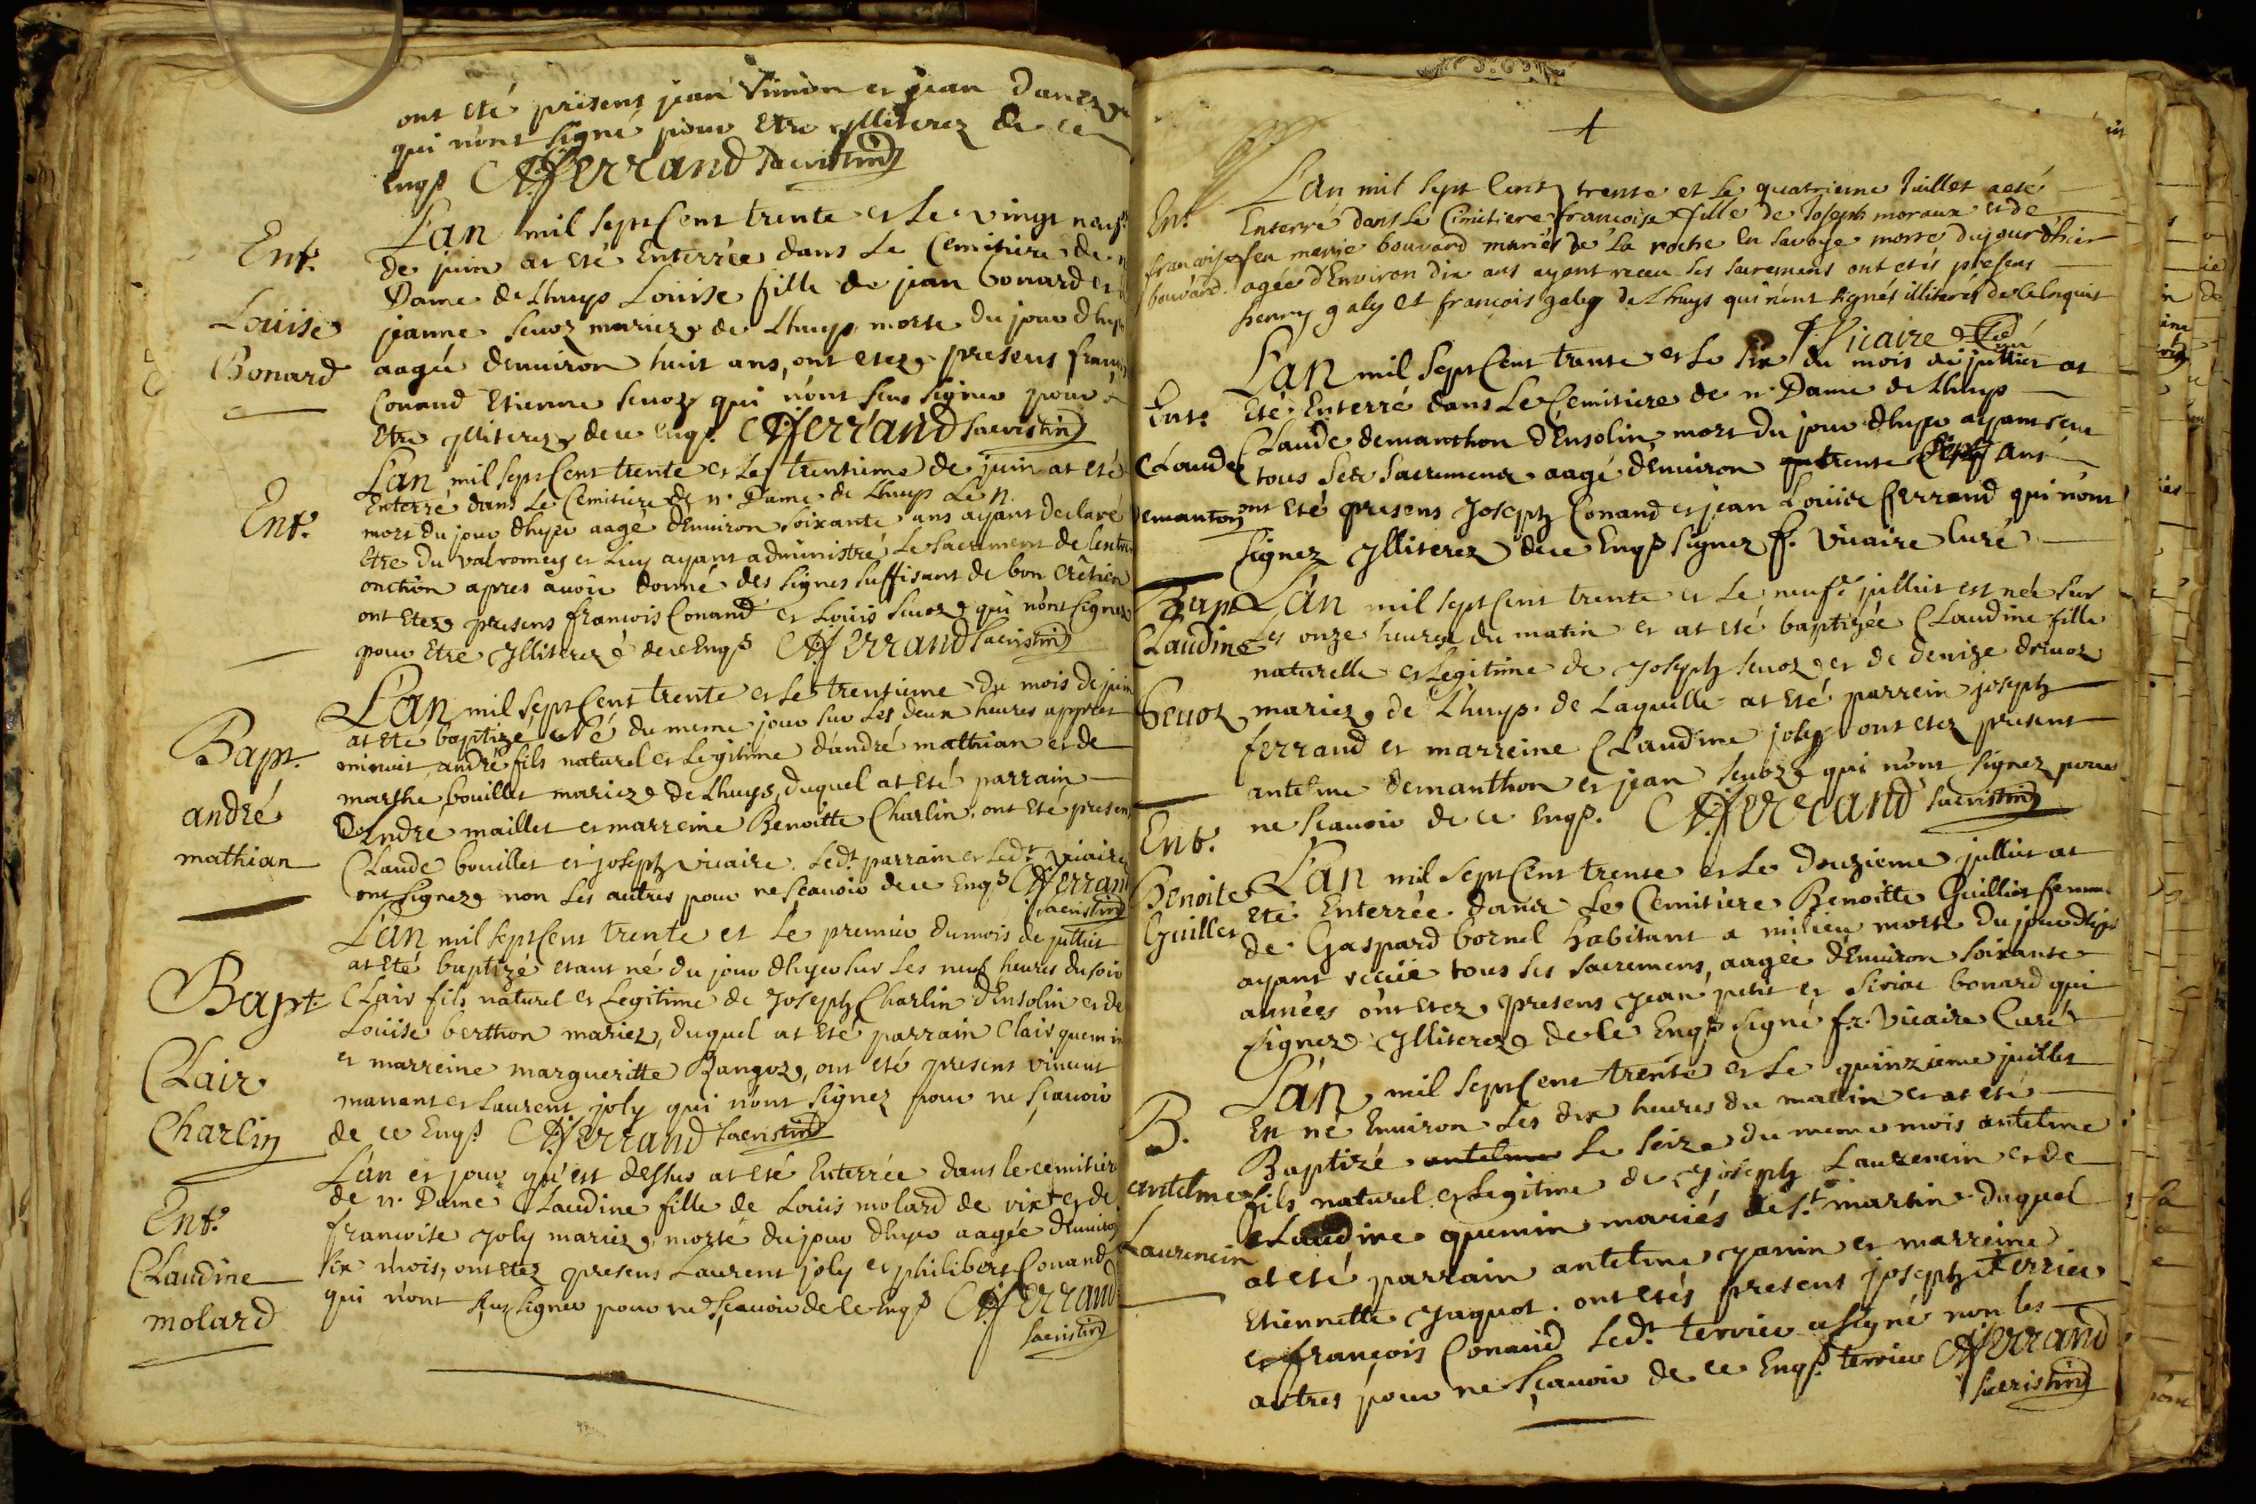 ont eté presens jean Vinnion et jean Danez
qui n'ont signé pour Etre jlliterez de ce
Enqs Ferrand Sacristin
Ent.
Louise
Bonard
L'an mil sept Cent trente et Le vingt neuf.
de juin at eté Enterrée dans Le Cemitiere de n
Dame de Lhuys Louise fille de jean bonard et
jeanne Sevoz mariez de Lhuys morte du jour dhyer
aagée denuiron huit ans, ont etez presens
Conand Etienne Sevoz qui n'ont sceu signer pour
Etre jlliterez de ce Enqs. Ferrand Sacristin
Ent.
L'an mil sept Cent trente et Le trentieme de juin at eté
Enterré dans Le Cemitiere de n. Dame de Lhuys Le n.
mort du jour dhyer aagé dEnuiron soixante ans ayant declaré
Etre du valromey et Luy ayant administré Le sacrement de
onction apres auoir donné des signes suffisant de bon crêtien
ont etez presens francois Conand et Louis Sevoz qui n'ont signez
pour Etre jlliterez de ce Enqs Ferrand Sacristin
Bapt.
andré
mathian
L'an mil sept Cent trente et Le trentieme du mois de juin
at eté baptize né du meme jour sur Les deux heures appres
minuit, andré fils naturel et Legitime d'andré mathian et de
marthe bouillet mariez de Lhuys, duquel at eté parrain
andre maillet et marreine Benoitte Charlin, ont eté presen
Claude bouillet et joseph vicaire. Ledt parrain et Ledt Vicaire
ont signez non Les autres pour ne scauoir de ce Enqs Ferrand
Sacristin
Bapt
Clair
Charlin
L'an mil sept Cent trente et Le premier du mois de julliet
at eté baptizé etant né du jour dhyer sur Les neuf heures du soir
Clair fils naturel et Legitime de Joseph Charlin dEnsolin et de
Louise berthon mariez, duquel at eté parrain Clair quemin
et marreine margueritte Bangoz, ont eté presens vincent
manant et Laurent joly qui n'ont signez pour ne scauoir
de ce Enqs Ferrand Sacristin
Ent.
Claudine
molard
L'an et jour qu'est dessus at eté Enterrée dans le cemitier
de n. Dame Claudine fille de Louis molard de vix et de
francoise Joly mariez morte du jour dhyer aagée denuiron
six mois, ont etez presens Laurent joly et philibert Conand
qui n'ont sceu signer pour ne scauoir de ce Enqs Ferrand
Sacristin
Ent.
francoise
bouvard
L'an mil sept Cent trente et Le quatrieme Juillet a eté
Enterré dans Le Cimitiere francoise fille de Joseph moraux et de
feu marie bouvard mariés de La roche en savoye morte du jour d'hier
agée dEnviron dix ans ayant receu ses sacremens ont etés presens
henry galy et francois galy de Lhuys qui n'ont signés illiteres de ce Enquis
Vicaire Curé
Ent.
Claude
Demanton
L'an mil sept Cent trente et Le six du mois de julliet at
Eté Enterré dans Le Cemitiere de n. Dame de Lhuys
Claude demanthon dEnsolin mort du jour dhyer ayant receu
tous ses sacremens aagé denuiron trente ans
ont eté presens Joseph Conand et jean Louise Ferrand qui n'ont
signez jlliterez de ce Enqs signez f. Vicaire Curé
Bapt
Claudine
Sevoz
L'an mil sept Cent trente et Le neufe julliet est née sur
Les onze heures du matin et at eté baptizée Claudine fille
naturelle et Legitime de Joseph Sevoz et de denize drevoz
mariez de Lhuys. de Laquelle at eté parrein joseph
ferrand et marreine Claudine joly ont etez present
antelme demanthon et jean Sevoz qui n'ont signez pour
ne scauoir de ce Enqs. Ferrand Sacristin
Ent.
Benoite
Guillet
L'an mil sept Cent trente et Le douzieme julliet at
Eté Enterrée dans Le Cemitiere Benoitte Guilliet femme
de Gaspard bornel habitant a milieu morte du jour dhyer
ayant receüe tous ses sacremens, aagée dEnuiron soixante
années ont etez presens jean petit et bonard qui
signez jlliterez de Ce Enqs signé fr. Vicaire Curé
B.
antelme
Laurencin
L'an mil sept Cent trente et Le quinzieme juillet
Est né Enuiron Les dix heures du matin et at eté
Baptizé antelme Le seize du meme mois antelme
fils naturel et Legitime de Joseph Laurencin et de
Claudine quemin mariés de St. martin duquel
at eté parrain antelme janin et marreine
Etiennette Jaquot. ont etés present joseph terrier
et françois Conand Ledt. terrier a signé non les
autres pour ne Sçauoir de ce Enqs. terrier Ferrand
Sacristin